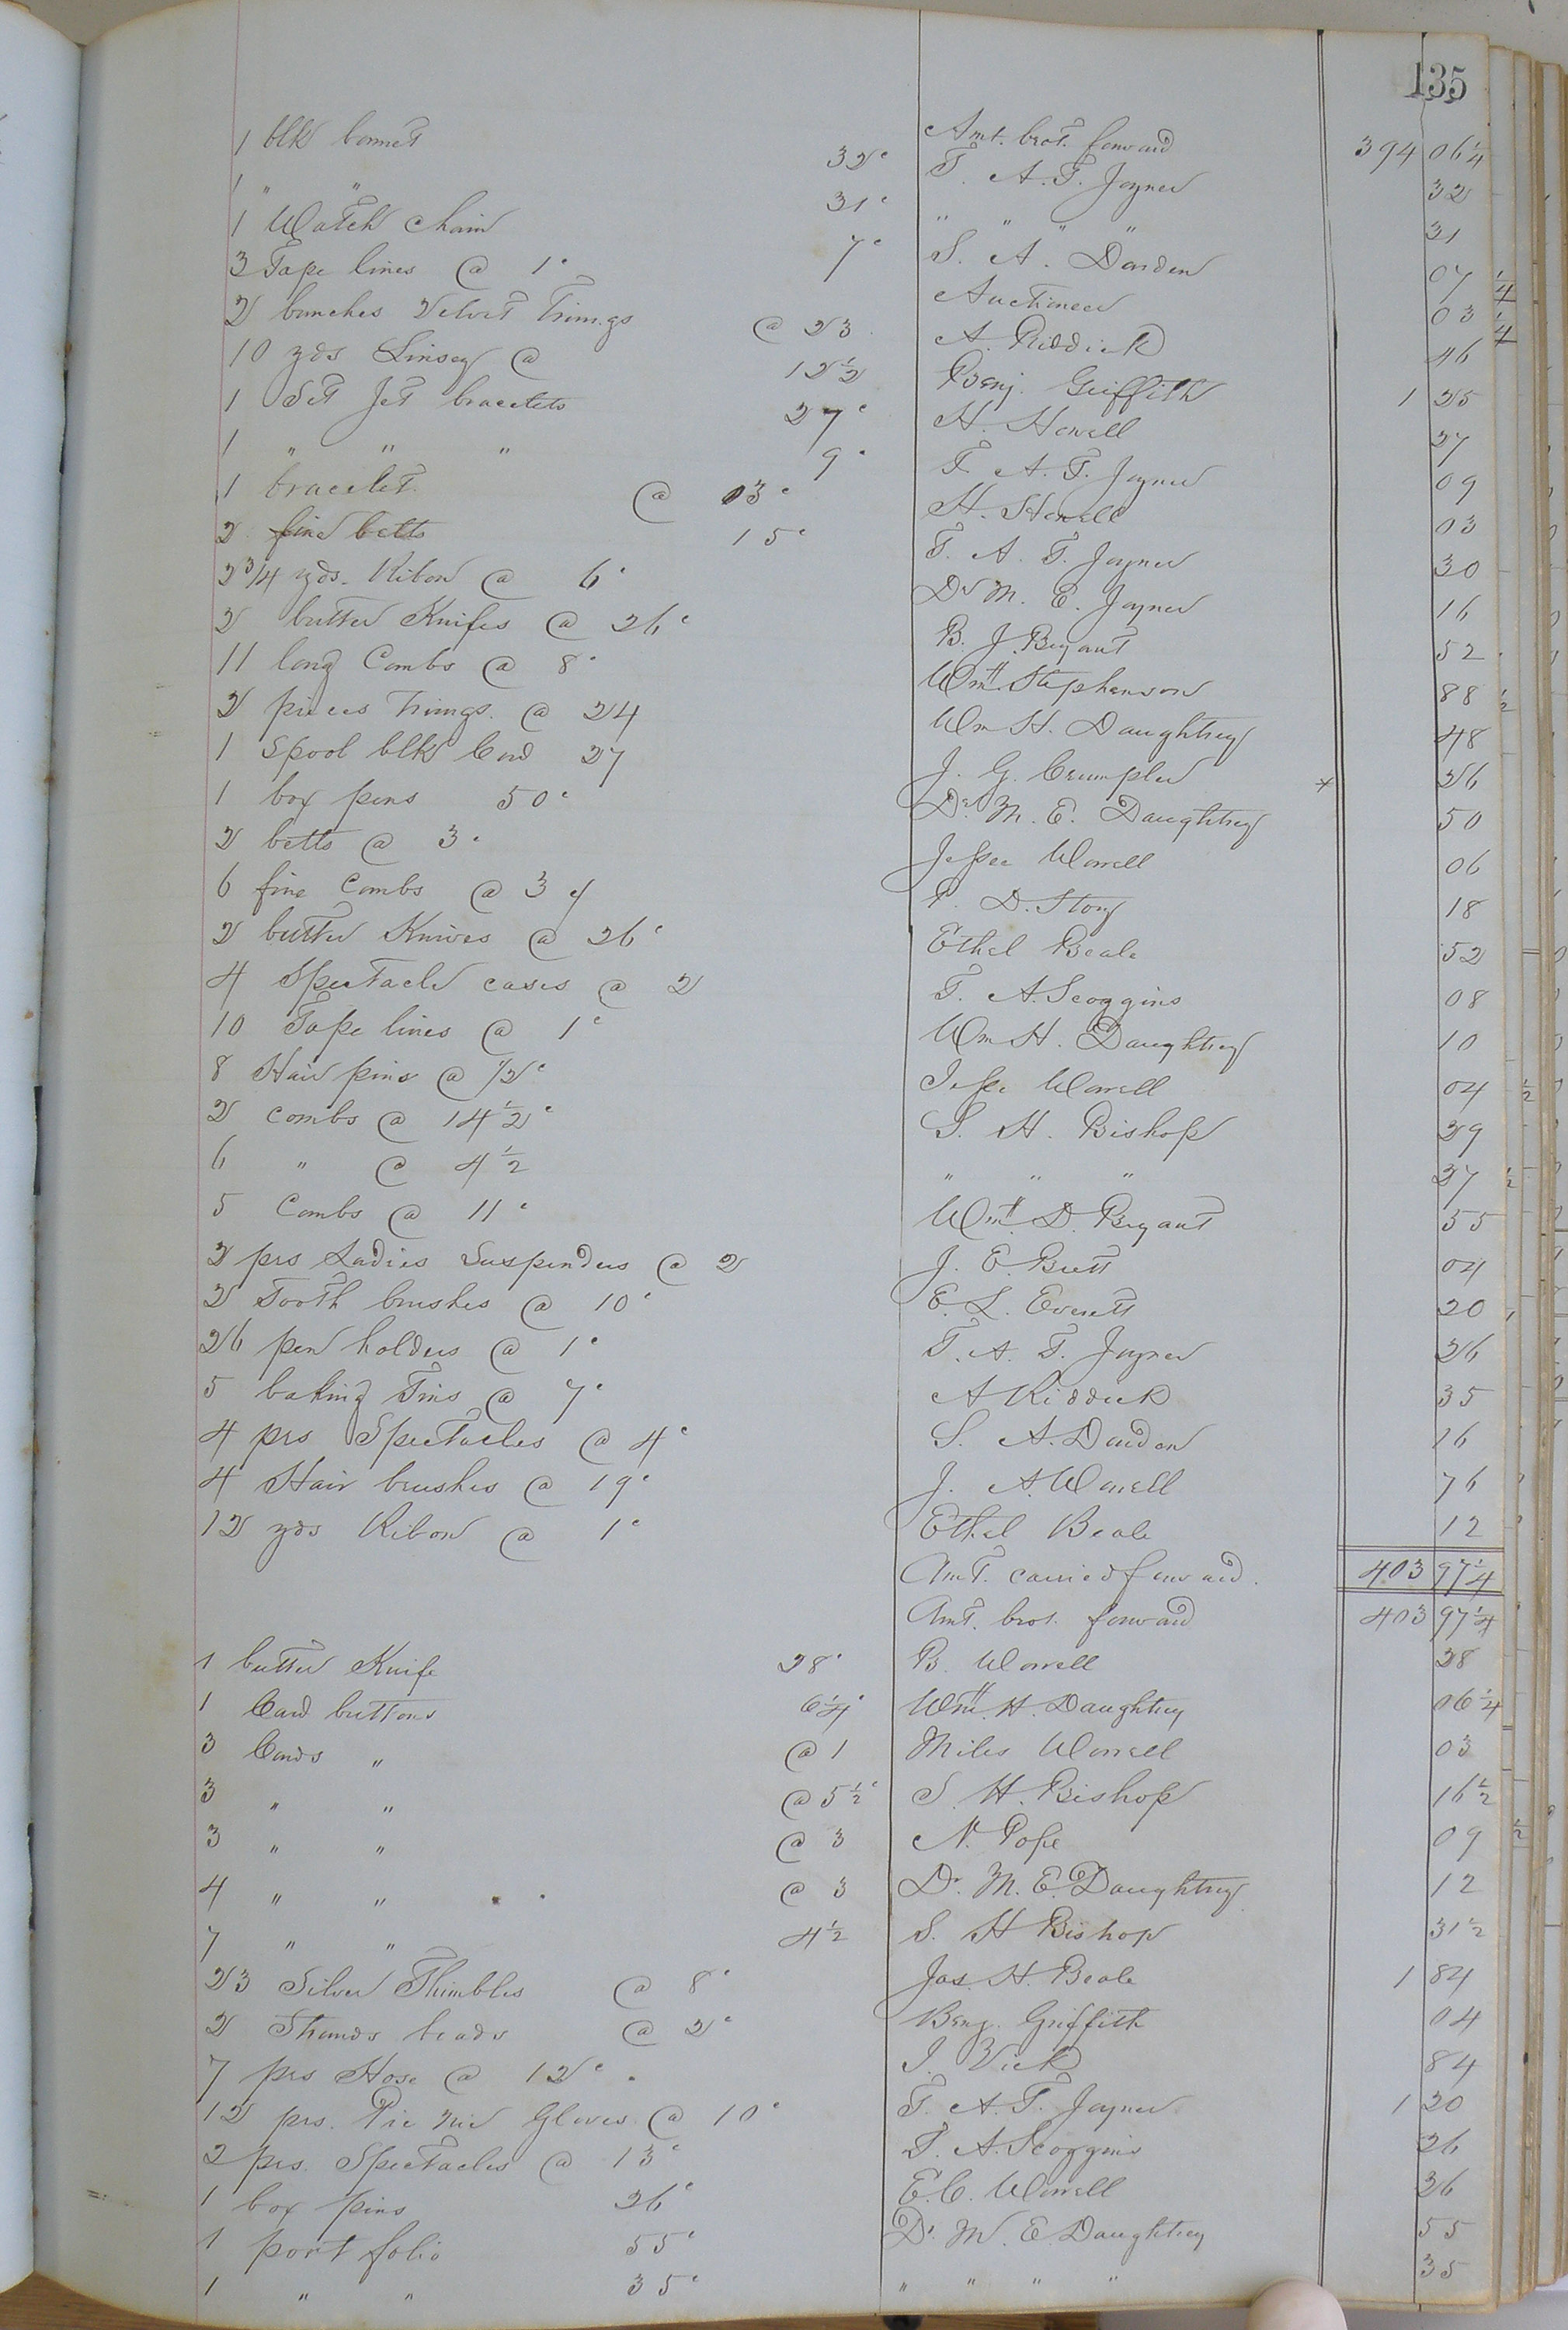 135
Amt. brot. forward 394 06 1/4
1 blk bonnet 32c T. A. T. Joyner 32
1 " " 31c " " " " 31
1 Watch chain 7c S. A. Darden 07
3 Tape lines @ 1c Auctioneer 03
2 bunches Velvet Trim.gs @ 23 A. Riddick 46
10 yds Linsey @ 12 1/2 Benj. Griffith 1 25
1 Set Jet bracelets 27c H. Howell 27
1 " " " 9c T. A. T. Joyner 09
1 bracelet. @ 03c H. Howell 03
2 fine belts 15c T. A. T. Joyner 30
2 3/4 yds. Ribon @ 6c Dr M. E. Joyner 16
2 butter Knifes @ 26c B. J. Bryant 52
11 long Combs @ 8c Wm. Stephenson 88
2 pieces Trimgs. @ 24 Wm H. Daughtrey 48
1 Spool blk Cord 27 J. G. Crumpler 26
1 box pens 50c Dr. M. E. Daughtrey * 50
2 belts @ 3c Jesse Worrell 06
6 fine Combs @ 3 c/ P. D. Story 18
2 butter Knives @ 26c Ethel Beale 52
4 Spectacle cases @ 2 T. A. Scoggins 08
10 Tape lines @ 1c Wm H. Daughtrey 10
8 Hair pins @ 1/2c Jesse Worrell 04
2 Combs @ 14 1/2c S. H. Bishop 29
6 " @ 4 1/2 " " " 27
5 Combs @ 11c Wm. D. Bryant 55
2 prs Ladies Suspenders @ 2 J. E. Brett 04
2 Tooth brushes @ 10c E. L. Everett 20
26 pen holders @ 1c T. A. T. Joyner 26
5 baking Tins @ 7c A Riddick 35
4 prs Spectacles @ 4c S. A. Dardon 16
4 Hair brushes @ 19c J. A. Worrell 76
12 yds Ribon @ 1c Ethel Beale 12
Amt. carried forward. 403 97 1/4
Amt. brot. forward 403 97 1/4
1 butter Knife 28c B. Worrell 28
1 Card buttons 6 1/4c Wm. H. Daughtrey 06 1/4
3 Cards " @ 1 Miles Worrell 03
3 " " @ 5 1/2c S. H. Bishop 16 1/2
3 " " @ 3 N. Pope 09
4 " " @ 3 Dr. M. E. Daughtrey 12
7 " " 4 1/2 S. H Bishop 31 1/2
23 Silver Thimbles @ 8c Jas. H. Beale 1 84
2 Strands beads @ 2c Benj. Griffith 04
7 prs Hose @ 12c J. Vick 84
12 prs. Pic Nic Gloves @ 10c T. A. T. Joyner 1 20
2 prs. Spectacles @ 13c T. A. Scoggins 26
1 box pins 26c E. C. Worrell 26
1 port folio 55c Dr. M. E. Daughtrey 55
1 " " 35c " " " " 35